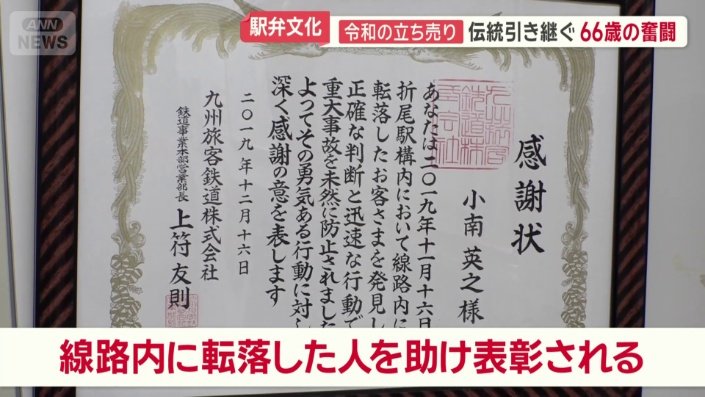 ANN
NEWS
駅弁文化
令和の立ち売り
伝統引き継ぐ 66歳の奮闘
感謝状
小南 英之 様
あなたは二〇一九年十一月十六日
折尾駅構内において線路内に
転落したお客さまを発見し
正確な判断と迅速な行動で
重大事故を未然に防止されました
よってその勇気ある行動に対し
深く感謝の意を表します
二〇一九年十二月十六日
九州旅客鉄道株式会社
鉄道事業本部営業部長 上符 友則
線路内に転落した人を助け表彰される